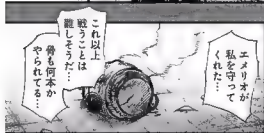 エメリオが
私を守って
くれた…
これ以上
戦うことは
難しそうだ…
骨も何本か
やられてる…